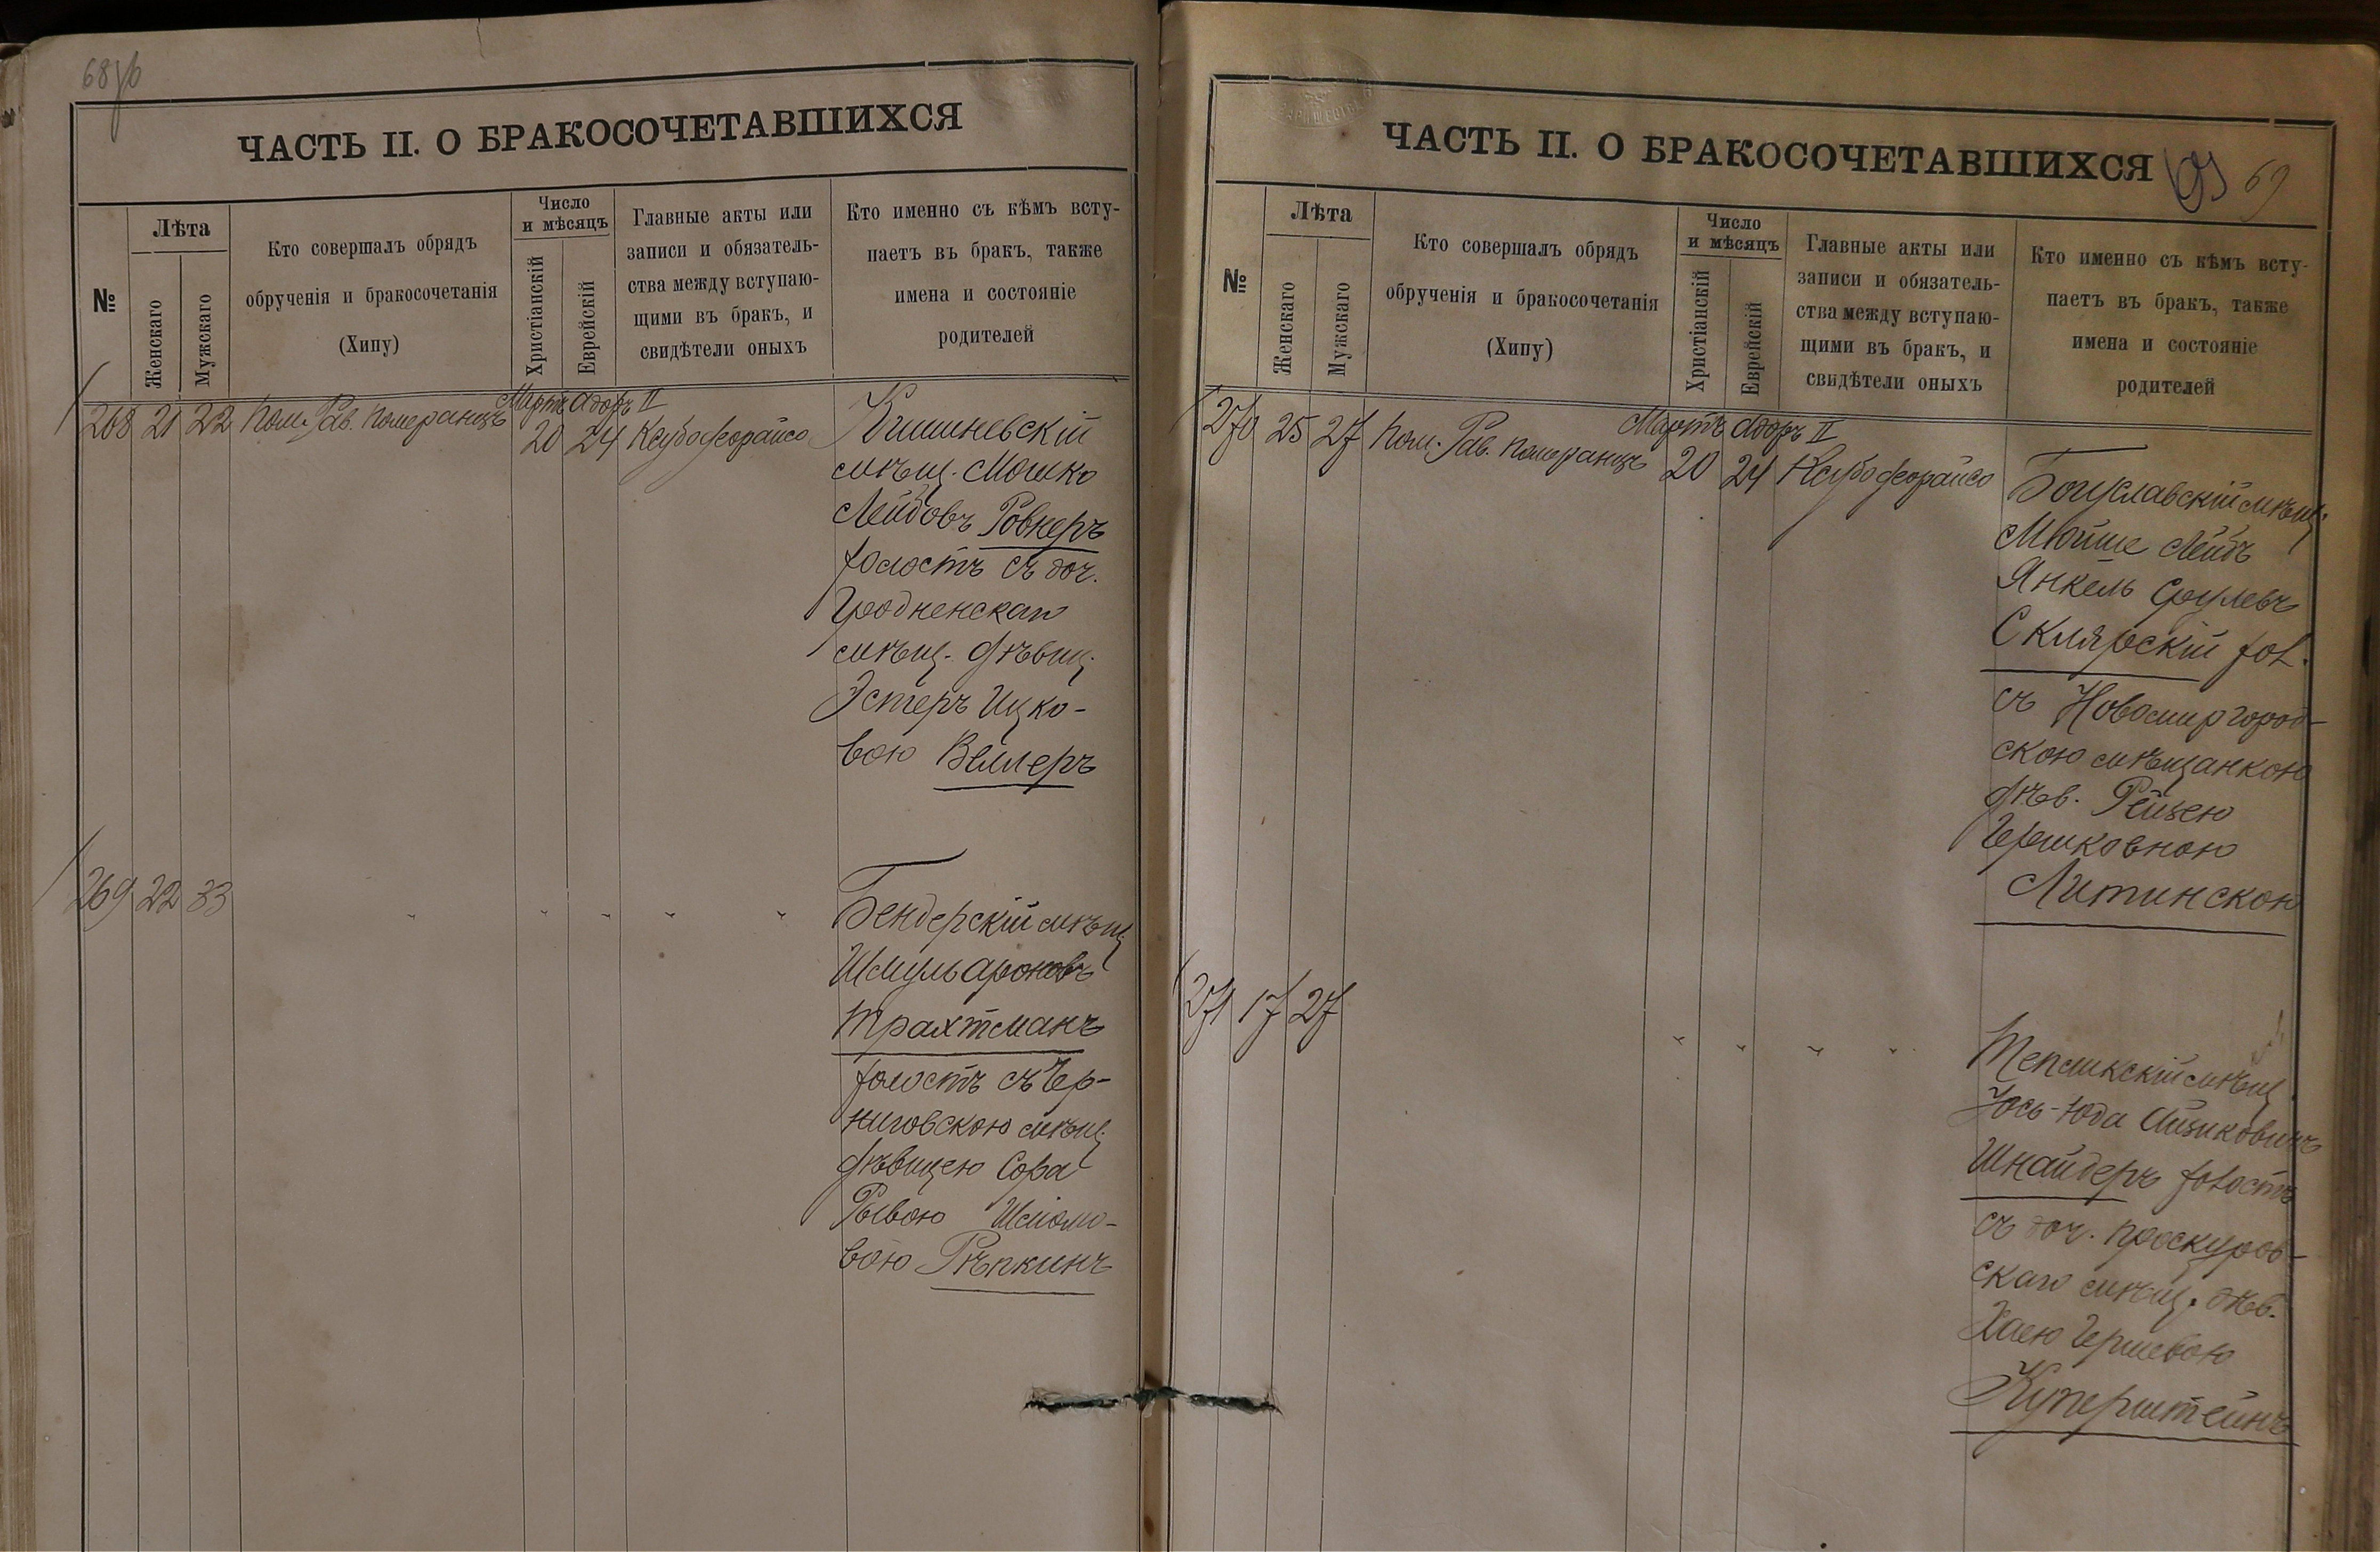 68об
ЧАСТЬ II. О БРАКОСОЧЕТАВШИХСЯ
№
Лѣта
Женскаго
Мужскаго
Кто совершалъ обрядъ
обрученія и бракосочетанія
(Хипу)
Число
и мѣсяцъ
Христіанскій
Еврейскій
Главные акты или
записи и обязатель-
ства между вступаю-
щими въ бракъ, и
свидѣтели оныхъ
Кто именно съ кѣмъ всту-
паетъ въ бракъ, также
имена и состояніе
родителей
Мартъ Адоръ II
268 21 22 Пом. Рав. Померанцъ 20 24 Ксубо
Кишиневскій
мѣщ. Мошко
Лейбовъ Ровнеръ
холостъ съ доч.
Гродненскаго
мѣщ. дѣвиц.
Эстеръ Ицко-
вою Веллеръ
269 22 33
Бендерскій мѣщ.
Шмуль Ароновъ
Трахтманъ
холостъ съ Чер-
ниговскою мѣщ.
дѣвицею Сора
Рывою Шліомо-
вою Рѣпкинъ
ЧАСТЬ II. О БРАКОСОЧЕТАВШИХСЯ
69
№
Лѣта
Женскаго
Мужскаго
Кто совершалъ обрядъ
обрученія и бракосочетанія
(Хипу)
Число
и мѣсяцъ
Христіанскій
Еврейскій
Главные акты или
записи и обязатель-
ства между вступаю-
щими въ бракъ, и
свидѣтели оныхъ
Кто именно съ кѣмъ всту-
паетъ въ бракъ, также
имена и состояніе
родителей
Мартъ Адоръ II
270 25 27 Пом. Рав. Померанцъ 20 24 Ксубо
Богуславскій мѣщ.
Мойше Лейбъ
Янкель Срулевъ
Склярскій хол.
съ Новомиргород-
скою мѣщанкою
дѣв. Рейзею
Гершковною
Литинскою
271 17 27
Тепликскій мѣщ.
Іось-Юда Айзиковичъ
Шнайдеръ холостъ
съ доч. Проскуров-
скаго мѣщ. дѣв.
Хаею Гершевою
Куперштейнъ